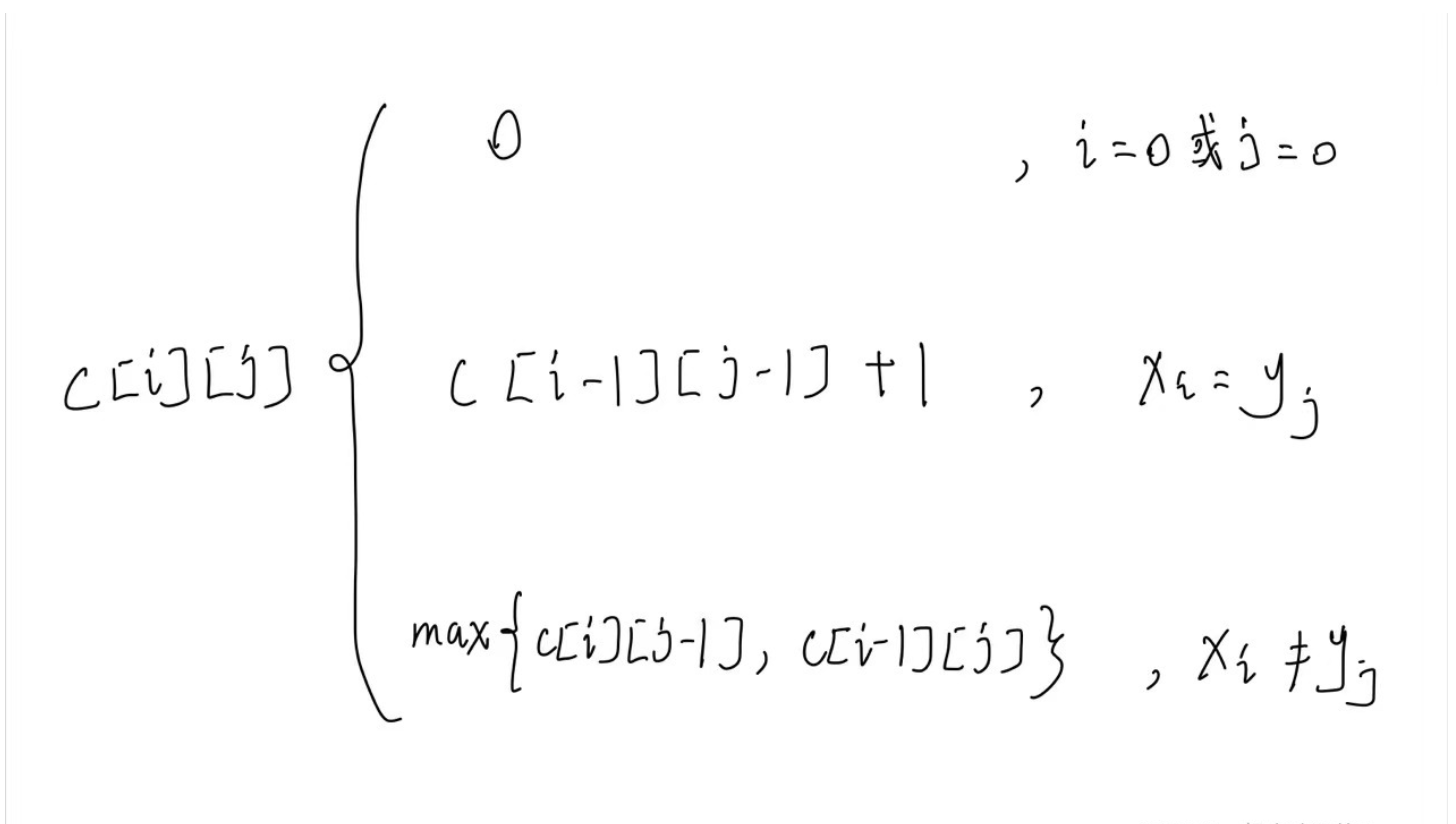 0 , i=0 或 j=0
c[i][j] { c[i-1][j-1]+1 , xᵢ=yⱼ
max{c[i][j-1], c[i-1][j]} , xᵢ≠yⱼ